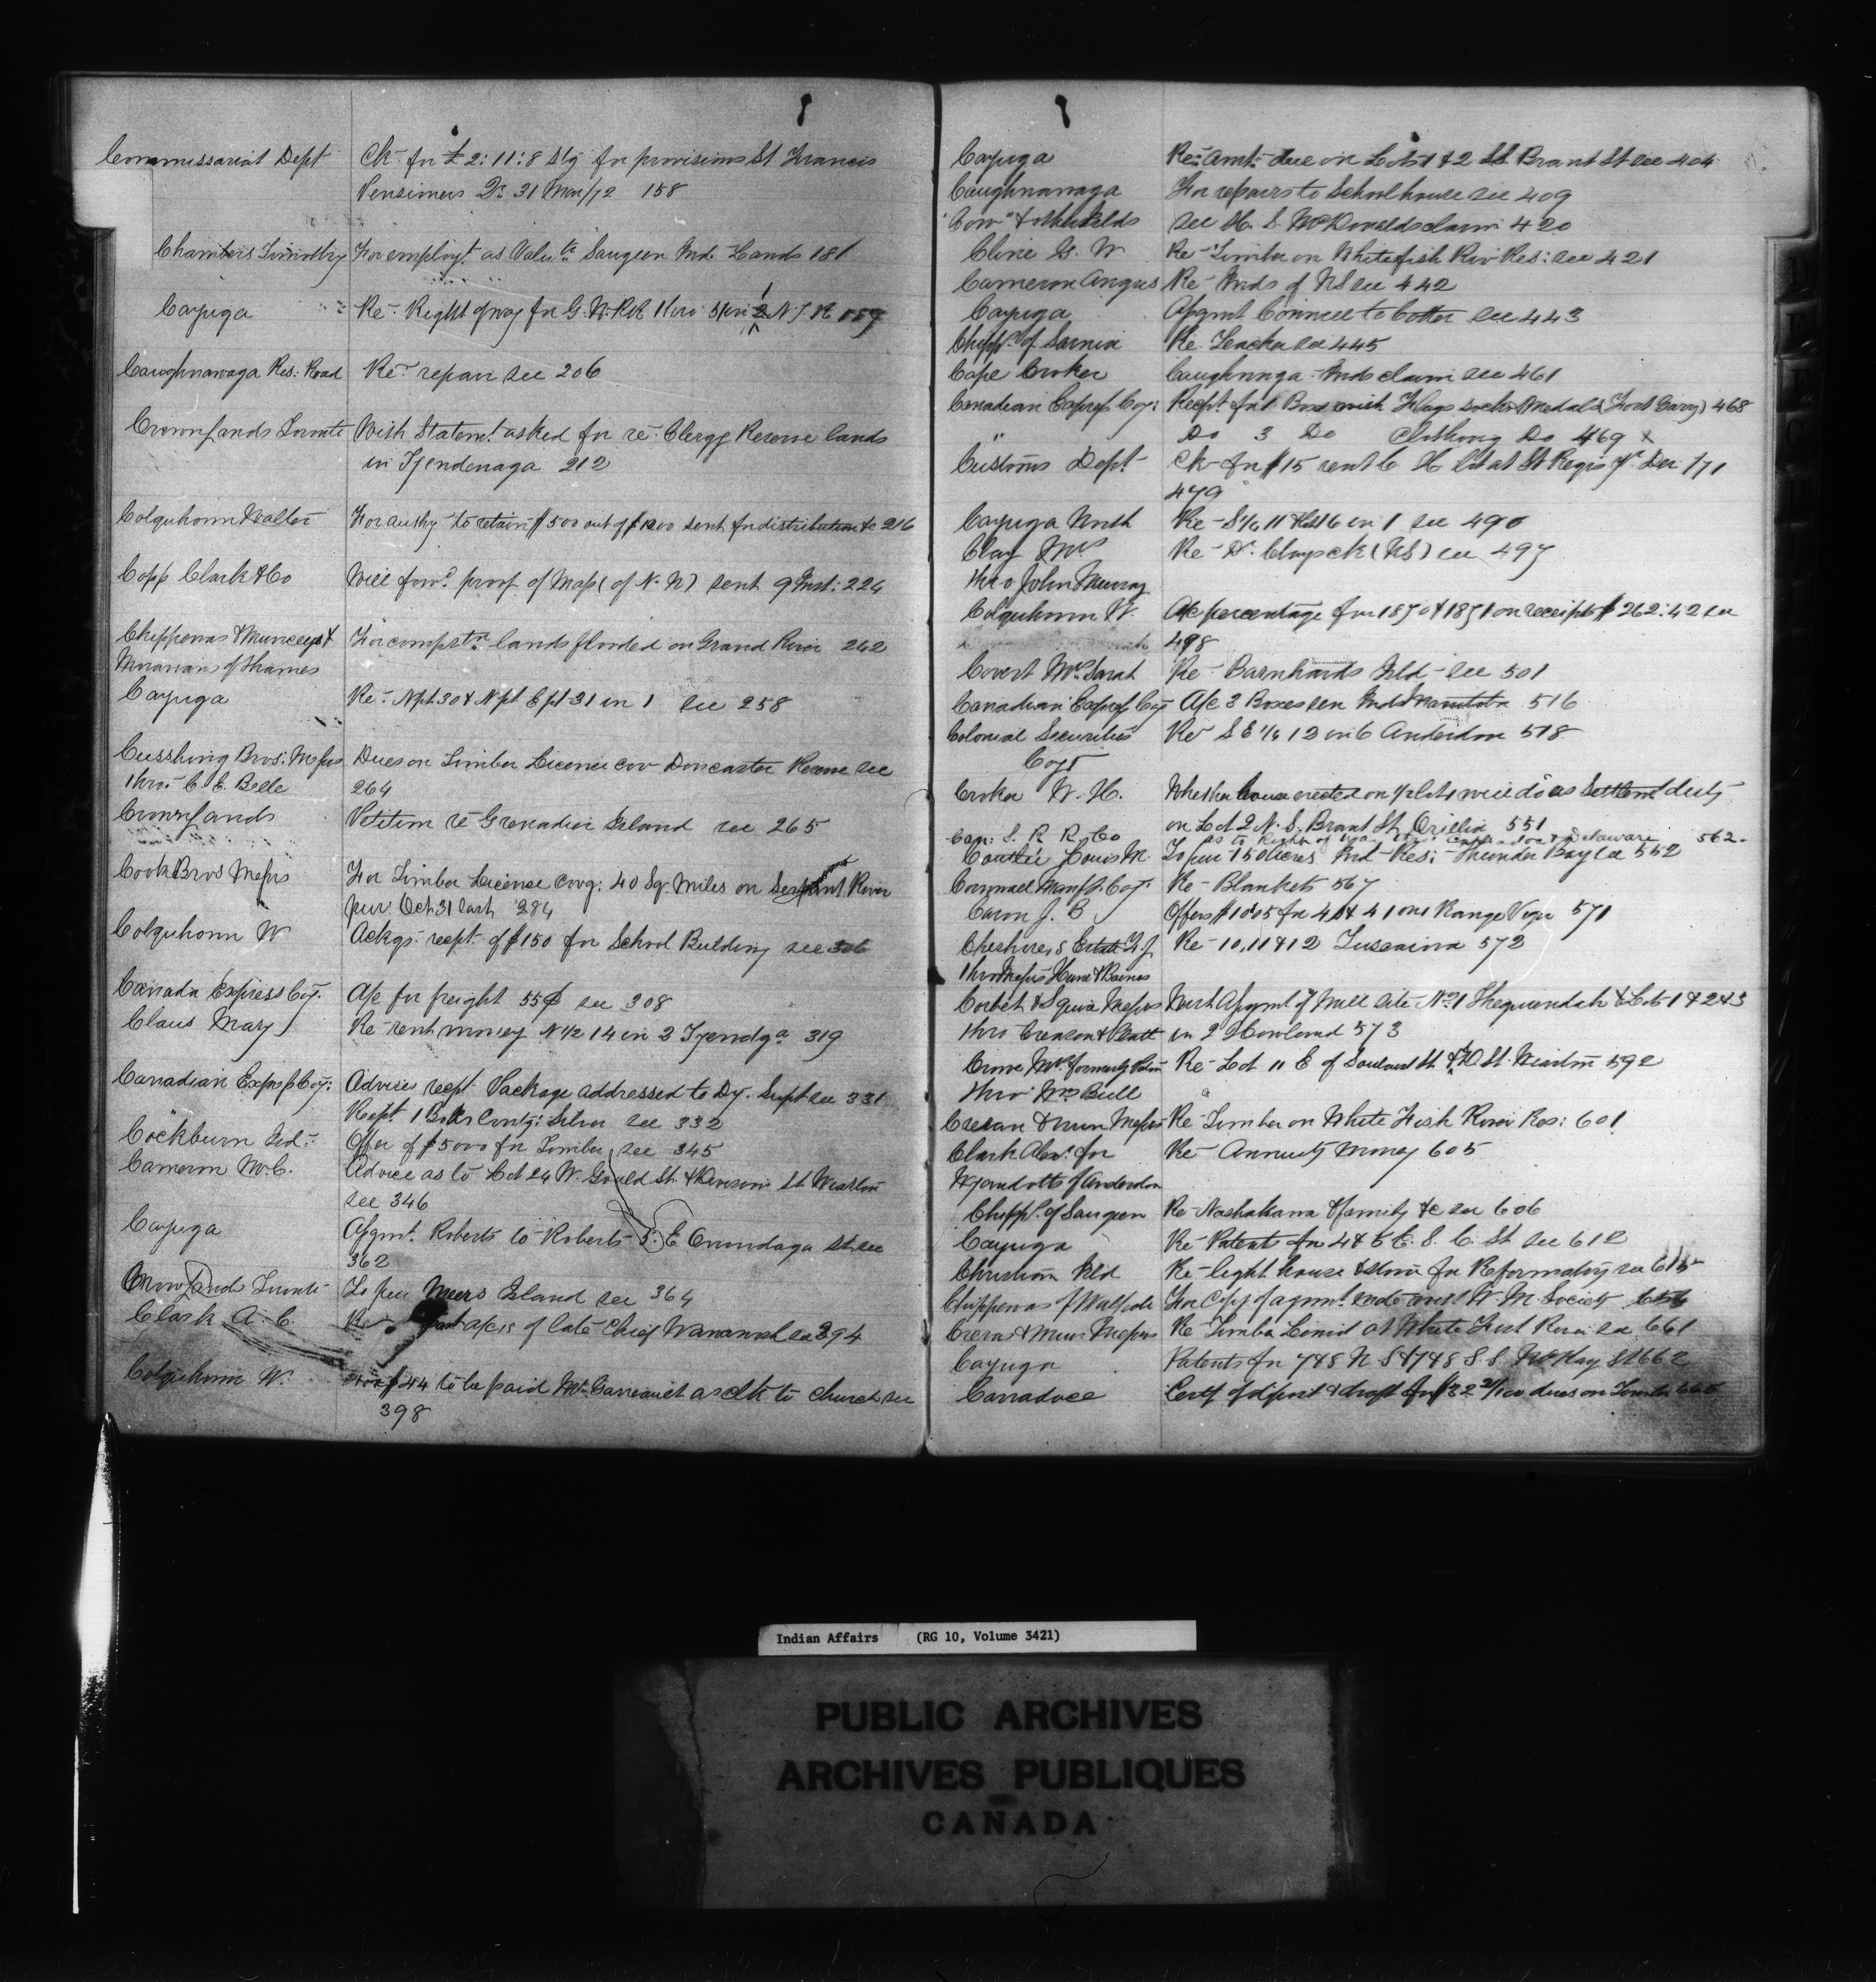 Commissariat Dept Ck. for £2:11:8 Stg for provisions St. Francis
Pensioners Qr. 31 Mar/72 158
Chambers Timothy For employt. as Valutr. Saugeen Ind. Lands 181
Cayuga Re. Right of way for G. W. RR thro 2 N T R 189
Caughnawaga Res: Road Re. repair see 206
Crown Lands Toronto With Statemt. asked for re. Clergy Reserve lands
in Tyendenaga 212
Colquhoun Walter For authy to retain $500 out of $1200 sent for distribution &c 216
Copp Clark & Co Will forwd. proof of Map (of N. W) sent 9 Inst: 224
Chippewas & Munceys & For compstn. lands flooded on Grand River 262
Moravians of Thames
Cayuga Re. N pt 30 & N pt E pt 31 in 1 see 258
Cusshing Bros: Messrs Dues on Timber Licence cov Doncaster Reserve see
thro. C. E. Belle 264
Crown Lands Petition re Grenadier Island see 265
Cook Bros Messrs For Timber License covg: 40 Sq. Miles on Serpent River
pur. Oct 31 last 284
Colquhoun W Ackgs. recpt. of $150 for School Building see 306
Canada Express Coy. A/c for freight 55¢ see 308
Claus Mary Re rent money N 1/2 14 in 2 Tyendga. 319
Canadian Express Coy: Advises recpt. Package addressed to Dy. Supt see 331
Recpt. 1 Box Contg: Silver see 332
Cockburn Isd: Offer of $5000 for Timber see 345
Cameron M. C. Advice as to Lot 24 W. Gould St. & Division St. Wiarton
see 346
Cayuga Assgmt. Roberts to Roberts S. E Onondaga St. see
362
Crown Lands Toronto To pur Meers Island see 364
Clark A. C. Re a/cs of late Chief Wawanosh see 394
Colquhoun W. $44 to be paid Mr. as clk to Church see
398
Cayuga Re: Amt: due on Lots 1 & 2 St. Brant St see 404
Caughnawaga For repairs to Schoolhouse see 409
"Cow" & other Islds see H. S. McDonalds claim 420
Cline G. W Re Timber on Whitefish Riv Res: see 421
Cameron Angus Re Inds of NS see 442
Cayuga Assgmt Connell to Cotter see 443
Chipps. of Sarnia Re Teacher see 445
Cape Croker Caughnnga Inds claim see 461
Canadian Express Coy: Recpt for 1 Box with Flags socks Medals (Fort Garry) 468
" Do 3 Do Clothing Do 469 x
Customs Dept Ck for $15 rent C. H lot at St Regis Yr. Dec /71
479
Cayuga North Re S 1/2 11 in 1 see 490
Clay Mrs Re D. Clays ck (NS) see 497
thro John Murray
Colquhoun W. A/c percentage for 1870 & 1871 on receipts $262.42 see
498
Covert Mrs. Sarah Re Barnhards Isld see 501
Canadian Express Coy A/c 3 Boxes sen Inds Manitoba 516
Colonial Securities Re S E 1/4 12 in 6 Anderdon 518
Coys
Croker W. H. Whether house erected on 4 lots will do as Settlemt duty
on Lot 2 N. S. Brant St. Orillia 551
Can: S. R R. Co as to Right of Way & Delaware 562.
Coutlee Louis M. To pur 150 acres Ind Res: Thunder Bay see 552
Cornwall Manfg. Coy. Re Blankets 567
Caron J. B Offers for 40 & 41 on 1 Range Viger 571
Cheshire, s Estate F. J. Re 10, 11 & 12 Tuscarora 572
thro Messrs
Corbet & Squire Messrs With Assgmt of Mill Site No. 1 Sheguiandah & Lots 1 & 2 & 3
thro Creasor & in 2 Howland 573
Crowe Mrs. formerly Re Lot 11 E of St. & St. Wiarton 592
thro Mr. Bull
Crerar & Muir Messrs Re Timber on White Fish River Res: 601
Clark Alex. for Re Annuity Money 605
Wyandotts of Anderdon
Chipps. of Saugeen Re Nashakana & family &c see 606
Cayuga Re Patents for 4 & 5 E. S. C. St see 612
Christian Isld Re light house & stone for Reformatory see 615
Chippewas of Walpole For Copy of agmt. W. M. Society 654
Crerar & Muir Messrs Re Timber Limit at White Fish River see 661
Cayuga Patents for 7 & 8 N S & 7 & 8 S S McKay St 662
Carradoce Certf of dposit & draft for $32 dues on Timber
Indian Affairs (RG 10, Volume 3421)
PUBLIC ARCHIVES
ARCHIVES PUBLIQUES
CANADA